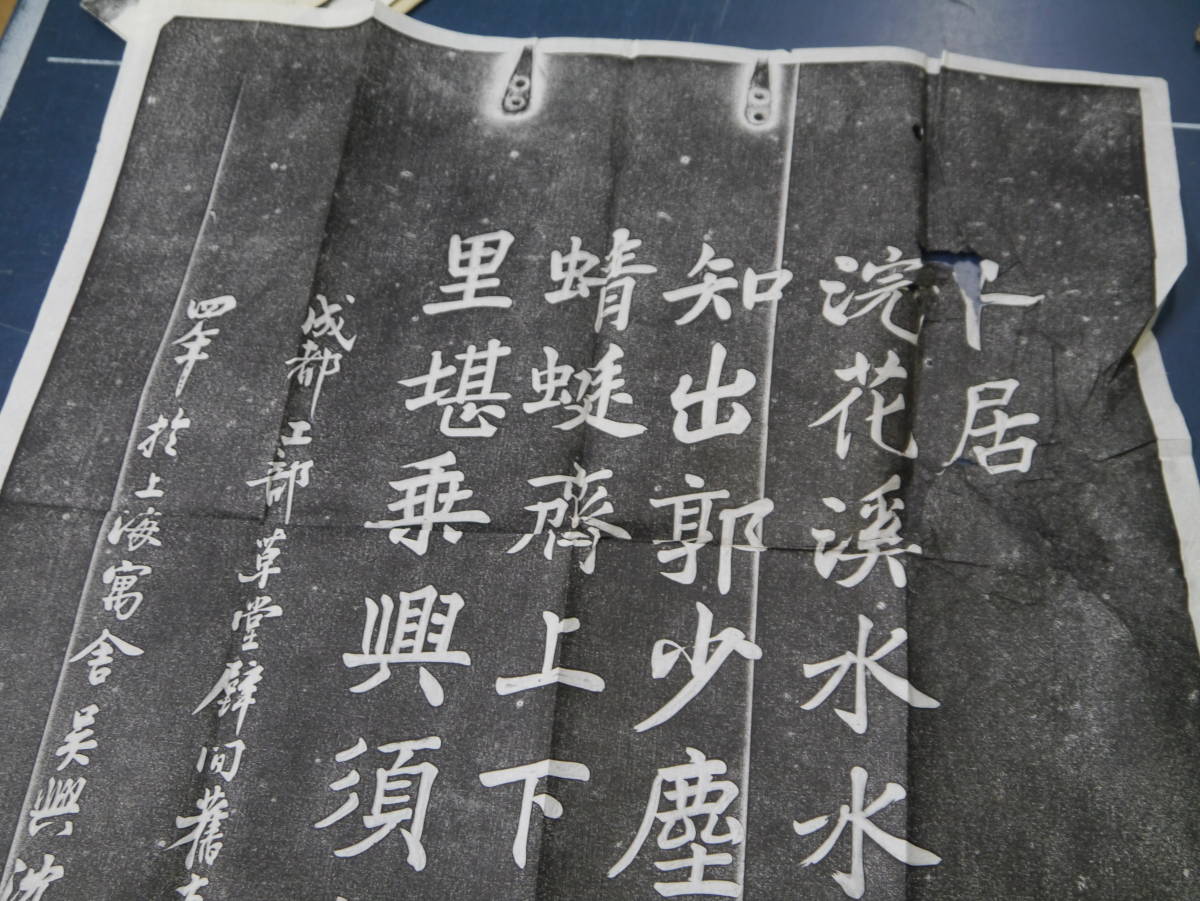 卜居
浣花溪水水
知出郭少塵
蜻蜓齊上下
里堪乗興須
成都工部草堂壁间舊
四年於上海寓舍吴興沈